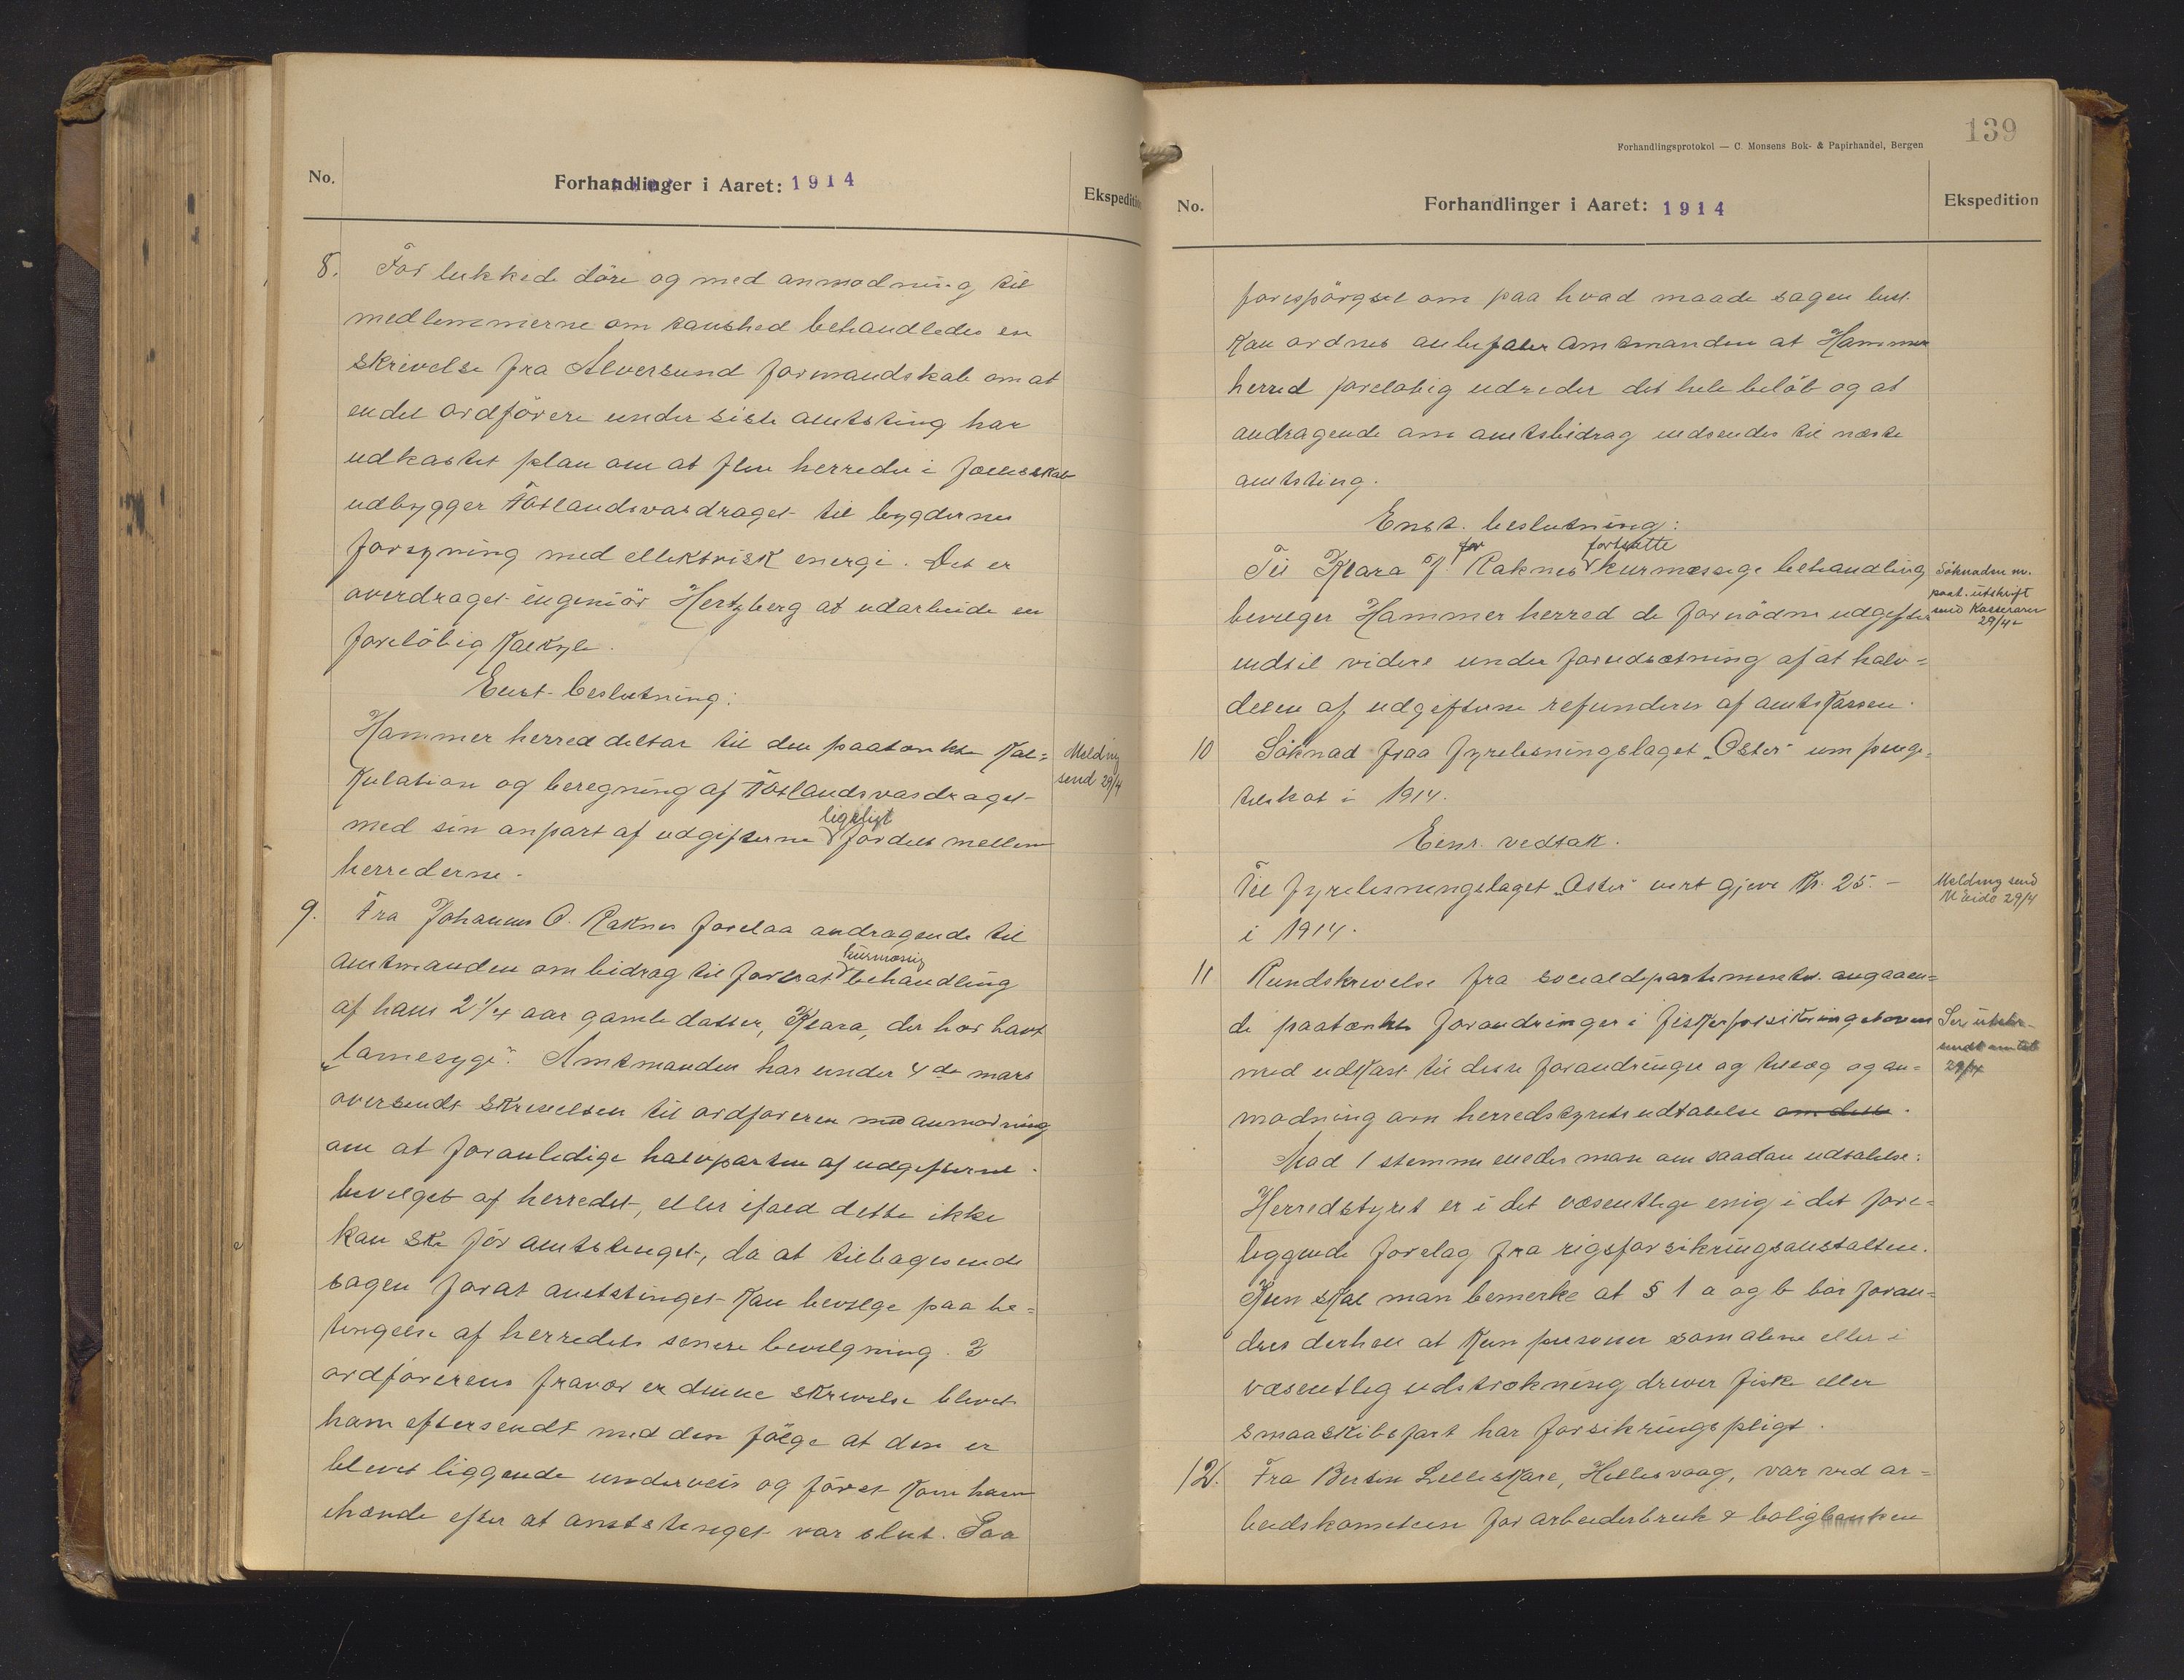 No.
Forhandlinger i Aaret: 1914
Ekspedition
8. For lukkede döre og med anmodning til
medlemmerne om taushed behandledes en
skrivelse fra Alversund formandskab om at
endel ordförere under siste amtsting har
udkastet plan om at flere herreder i fællesskab
udbygger Fotlandsvasdraget til bygdernes
forsyning med ellektrisk energi. Det er
overdraget ingeniör Hertzberg at udarbeide en
forelöbig kalkyle.
Enst. beslutning:
Hammer herred deltar til den paatænkte kal=
kulation og beregning af Fotlandsvasdraget
med sin anpart af udgifterne ligeligt fordelt mellem
herrederne.
Melding
send 29/4
9. Fra Johannes O. Raknes forelaa andragende til
amtmanden om bidrag til fortsat kurmæssig behandling
af hans 2 1/4 aar gamle datter, Klara, der har havt
"lamesyge". Amtmanden har under 4de mars
oversendt skrivelsen til ordföreren med anmodning
om at foranledige halvparten af udgifterne
bevilget af herredet, eller ifald dette ikke
kan ske för amtstinget, da at tilbagesende
sagen forat amtstinget kan bevilge paa be=
tingelse af herredets senere bevilgning. I
ordförerens fravær er denne skrivelse blevet
ham eftersendt med den fölge at den er
blevet liggende underveis og föret kom ham
ihænde efter at amtstinget var slut. Paa
139
Forhandlingsprotokol — C. Monsens Bok- & Papirhandel, Bergen
No.
Forhandlinger i Aaret: 1914
Ekspedition
forespörgsel om paa hvad maade sagen best
kan ordnes anbefaler amtmanden at Hammer
herred forelöbig udreder det hele belöb og at
andragende om amtsbidrag indsendes til næste
amtsting.
Enst. beslutning:
Til Klara J. Raknes for fortsatte kurmæssige behandling
bevilger Hammer herred de fornödne udgifter
indtil videre under forudsætning af at halv=
delen af udgifterne refunderes af amtskassen.
Söknaden m.
paat. utskrift
send Kasseraren
29/4
10 Söknad fraa fyrelesningslaget "Oster" um penge=
tilskot i 1914.
Einr. vedtak.
Til fyrelesningslaget "Oster" vert gjeve Kr. 25.—
i 1914.
Melding send
29/4
11 Rundskrivelse fra socialdepartementet angaaen=
de paatænkte forandringer i fiskerforsikringsloven
med udkast til disse forandringer og tillæg og an=
modning om herredstyrets udtalelse om dette.
29/4
Mod 1 stemme enedes man om saadan udtalelse:
Herredstyret er i det væsentlige enig i det fore=
liggende forslag fra rigsforsikringsanstalten.
Kun skal man bemerke at § 1 a og b bör foran=
dres derhen at kun personer som alene eller i
væsentlig udstrækning driver fiske eller
smaaskibsfart har forsikringspligt.
12. Fra Bertin Lilleskare, Hellesvaag, var ved ar=
beidskomiteen for arbeiderbruk & boligbanken